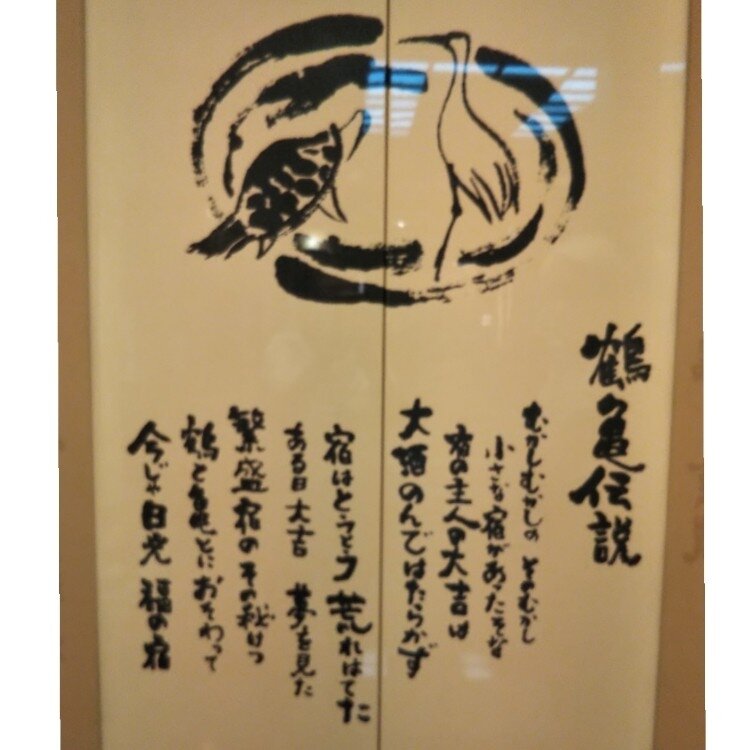 鶴亀伝説
むかしむかしの そのむかし
小さな宿があったそな
宿の主人の大吉は
大酒のんではたらかず
宿はとうとう荒れはてた
ある日大吉 夢を見た
繁盛宿のその秘けつ
鶴と亀とにおそわって
今じゃ日光 福の宿